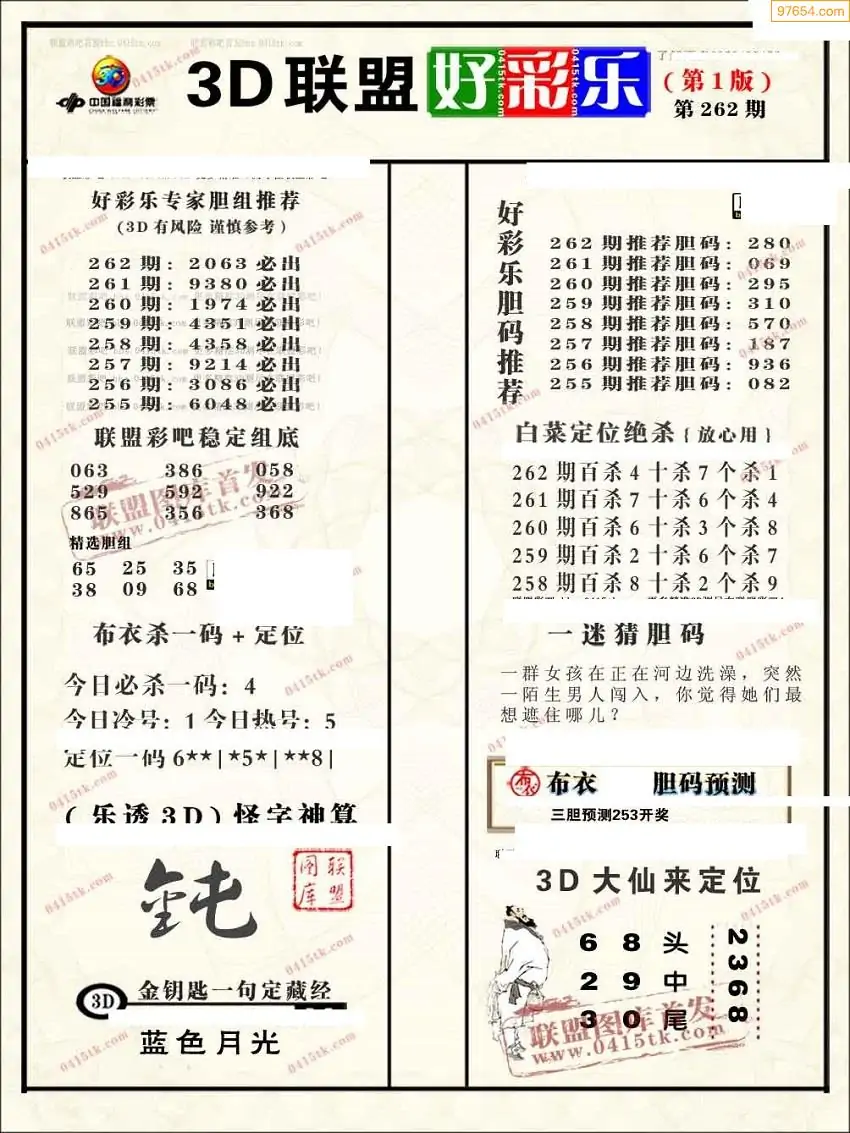 97654.com
中国福利彩票
CHINA WELFARE LOTTERY
3D联盟好彩乐
0415tk.com
0415tk.com
(第1版)
第262期
好彩乐专家胆组推荐
(3D有风险 谨慎参考)
262期: 2063必出
261期: 9380必出
260期: 1974必出
259期: 4351必出
258期: 4358必出
257期: 9214必出
256期: 3086必出
255期: 6048必出
联盟彩吧稳定组底
063 386 058
529 592 922
865 356 368
精选胆组
65 25 35
38 09 68
布衣杀一码+定位
今日必杀一码: 4
今日冷号: 1 今日热号: 5
定位一码 6**|*5*|**8|
(乐透3D)怪字神算
联盟图库
3D 金钥匙一句定藏经
蓝色月光
好彩乐胆码推荐
262期推荐胆码: 280
261期推荐胆码: 069
260期推荐胆码: 295
259期推荐胆码: 310
258期推荐胆码: 570
257期推荐胆码: 187
256期推荐胆码: 936
255期推荐胆码: 082
白菜定位绝杀{放心用}
262期百杀4十杀7个杀1
261期百杀7十杀6个杀4
260期百杀6十杀3个杀8
259期百杀2十杀6个杀7
258期百杀8十杀2个杀9
一迷猜胆码
一群女孩在正在河边洗澡，突然
一陌生男人闯入，你觉得她们最
想遮住哪儿？
布衣 布衣 胆码预测
三胆预测253开奖
3D大仙来定位
6 8 头
2 9 中
3 0 尾
2368
联盟图库首发
www.0415tk.com
联盟图库首发
www.0415tk.com
0415tk.com